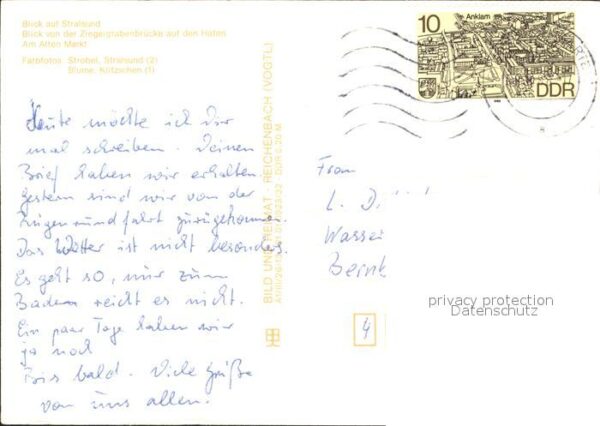 Blick auf Stralsund
Blick von der Ziegelgrabenbrücke auf den Hafen
Am Alten Markt
Farbfotos: Strobel, Stralsund (2)
Blume, Klitzschen (1)
Heute möchte ich Dir
mal schreiben. Deinen
Brief haben wir erhalten.
Gestern sind wir von der
Rügenrundfahrt zurückgekommen.
Das Wetter ist nicht besonders.
Es geht so, nur zum
Baden reicht es nicht.
Ein paar Tage haben wir
ja noch
Bis bald. Viele Grüße
von uns allen.
BILD UND HEIMAT REICHENBACH (VOGTL)
10
Anklam
DDR
Frau
L.
Wasser
Bernb
4
privacy protection
Datenschutz